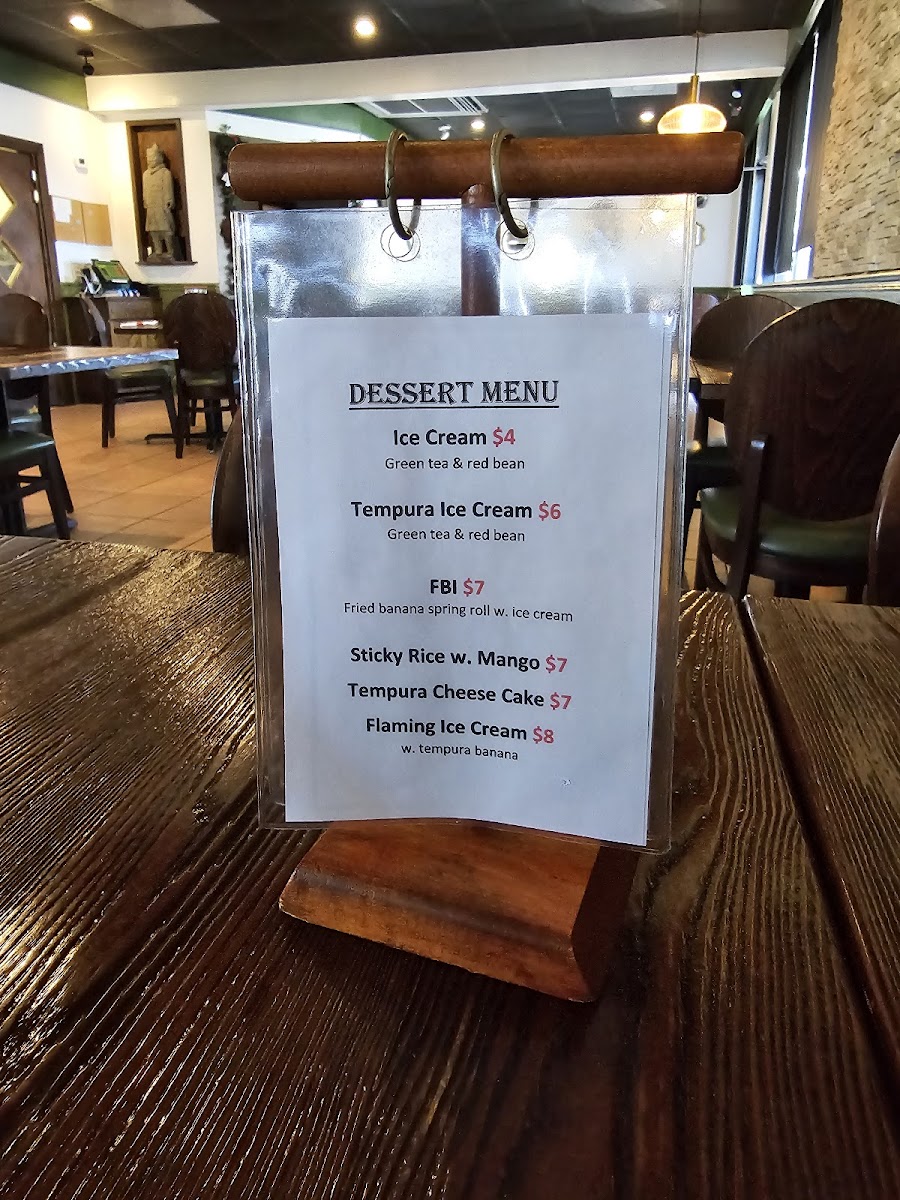 DESSERT MENU
Ice Cream $4
Green tea & red bean
Tempura Ice Cream $6
Green tea & red bean
FBI $7
Fried banana spring roll w. ice cream
Sticky Rice w. Mango $7
Tempura Cheese Cake $7
Flaming Ice Cream $8
w. tempura banana